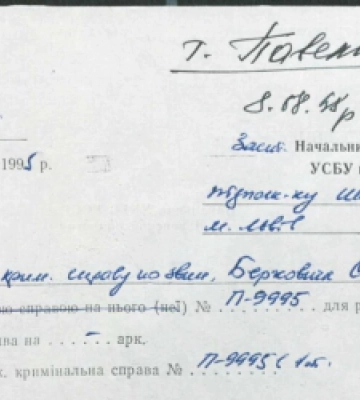 т. Павел
8.08.95р
1995 р.
Заст. Начальни
УСБУ
підполк-ку
м. Львів
крим. справу по звин. Берковича С
ою справою на нього (неї) № П-9995 для р
ва на – арк.
к. кримінальна справа № П-9995 (1т.